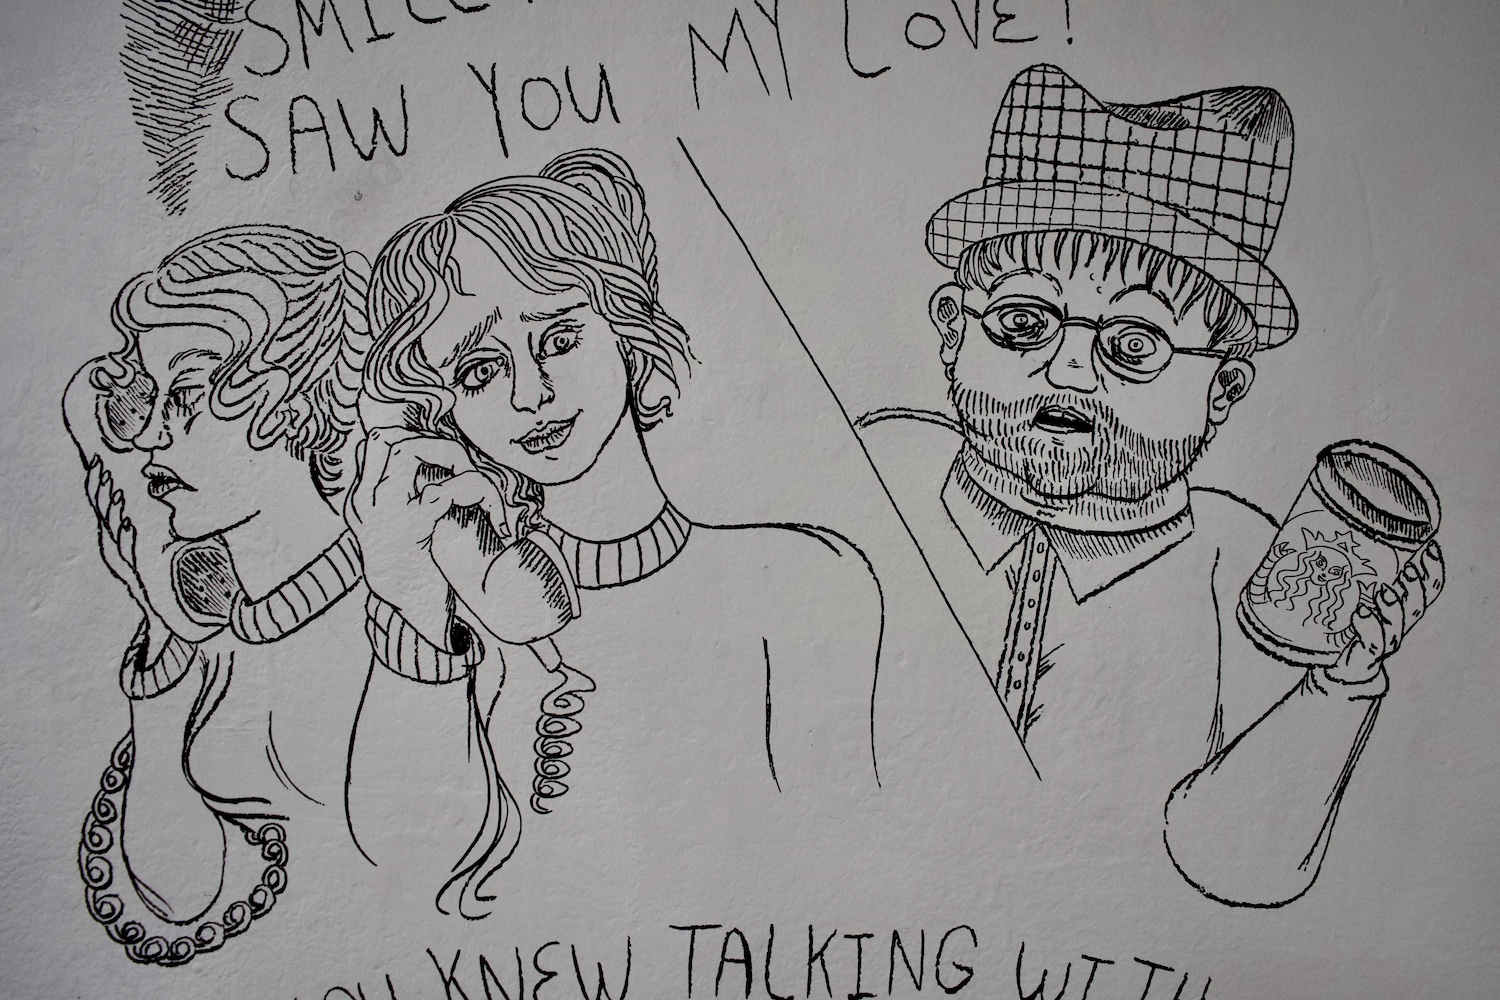 SAW YOU MY LOVE!
YOU KNEW TALKING WITH